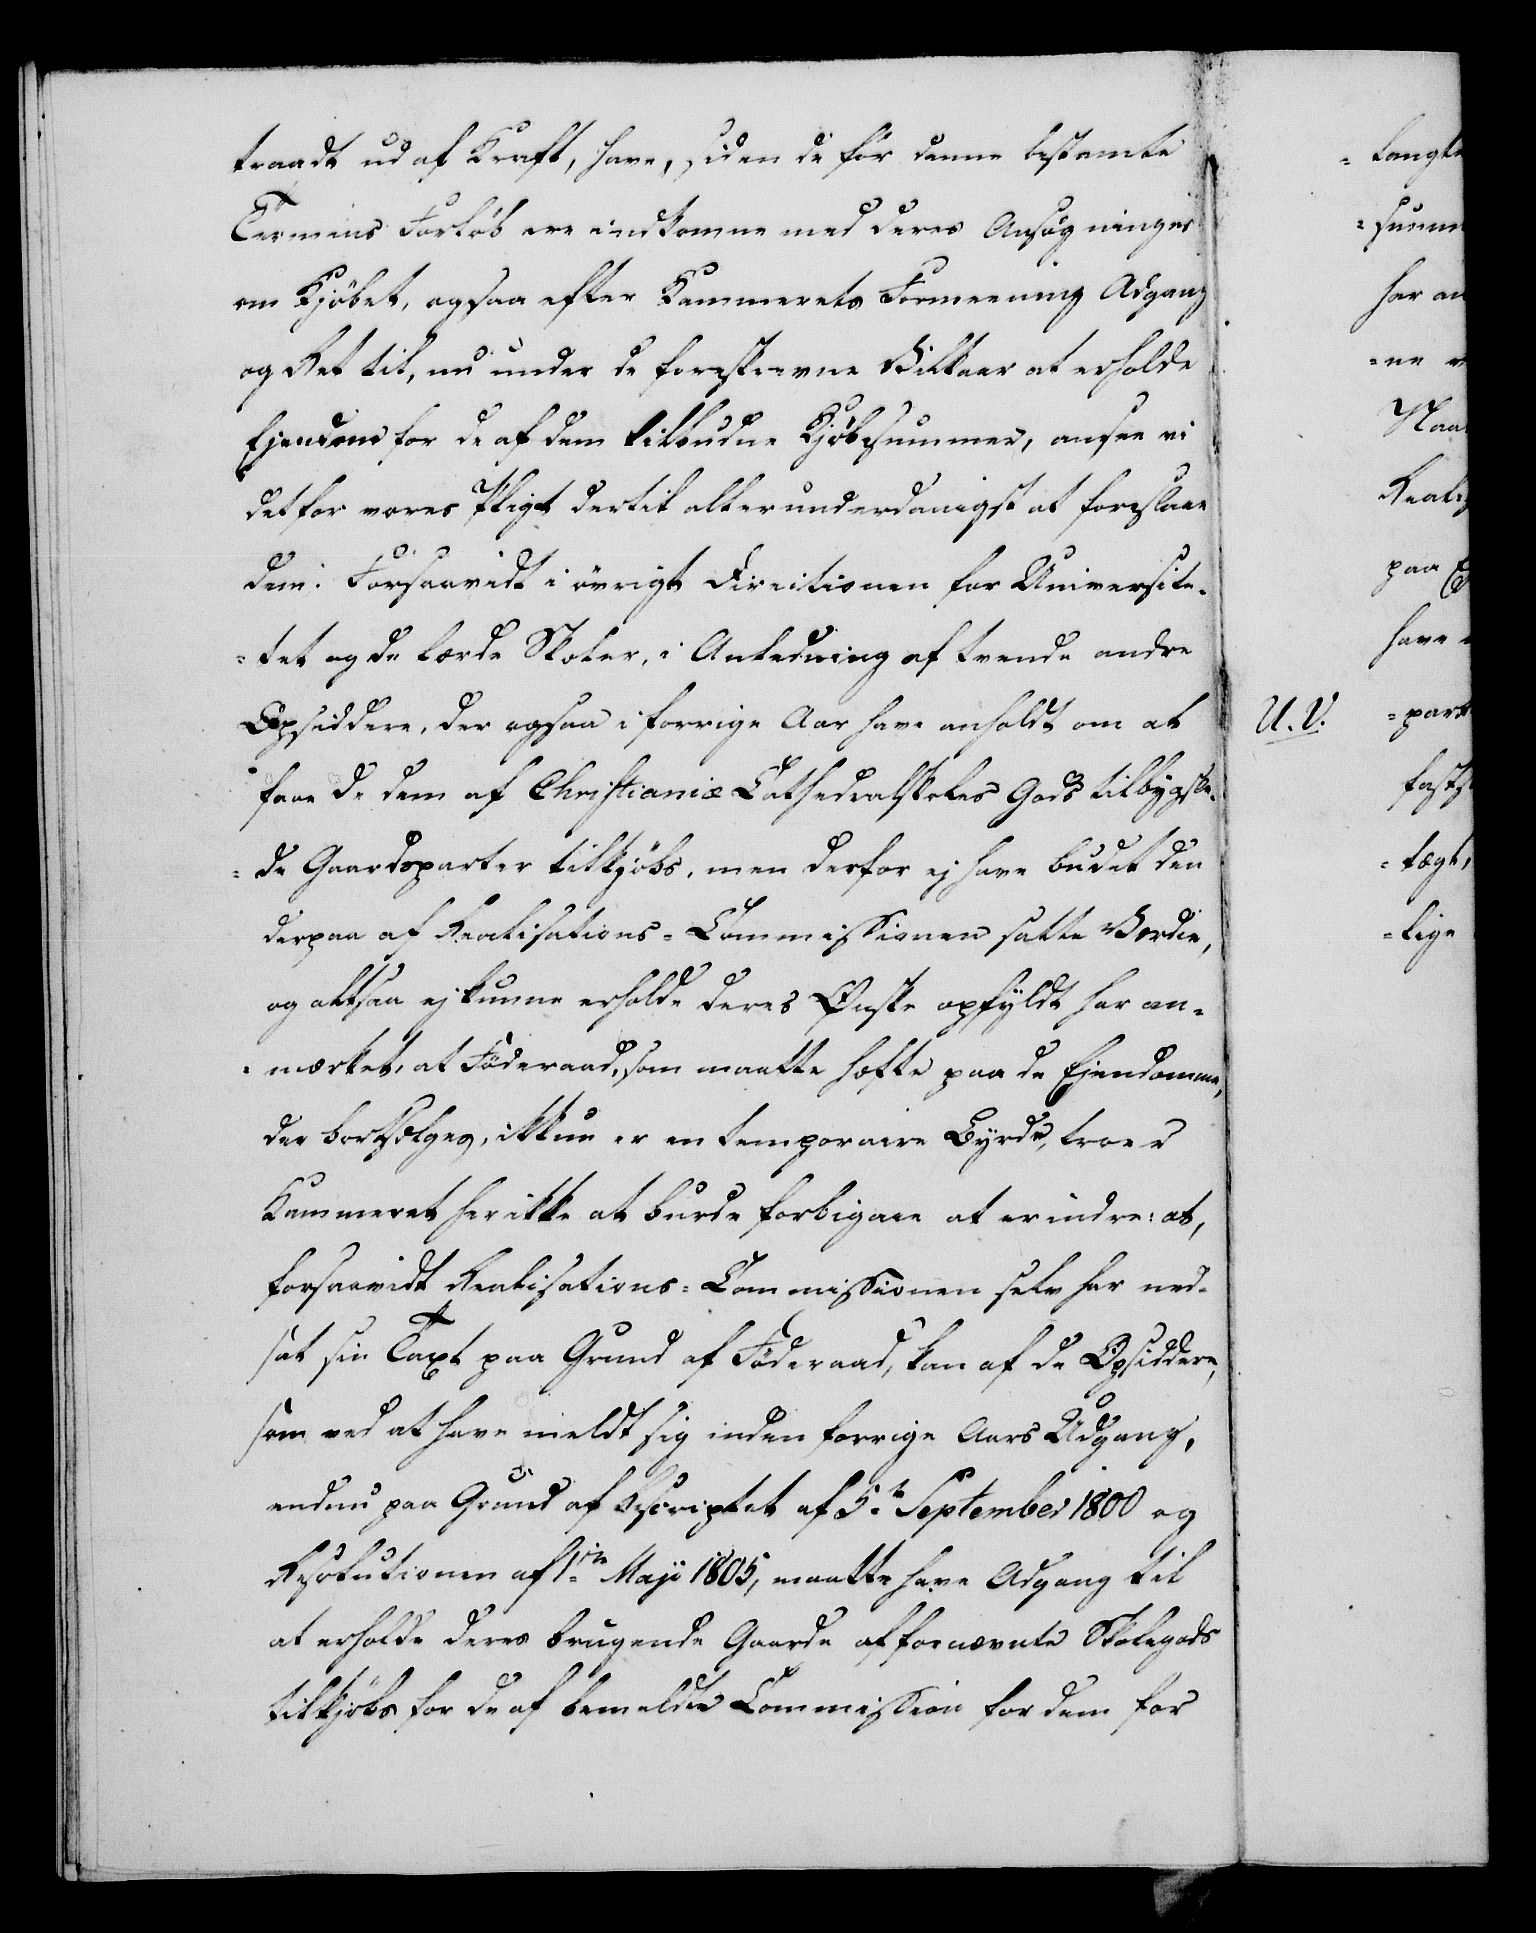 traadt ud af Kraft, have, siden de før denne bestemte
Termins Forløb ere indkomne med deres Ansøgninger
om Kjøbet, ogsaa efter Kammerets Formeening Adgang
og Ret til, nu under de foreskrevne Vilkaar at erholde
Ejendom for de af dem tilbudne Kjøbesummer, ansee vi
det for vores Pligt dertil allerunderdanigst at foreslaae
dem. Forsaavidt i øvrigt Directionen for Universite-
-tet og de lærde Skoler, i Anledning af tvende andre
Opsiddere, der ogsaa i forrige Aar have anholdt om at
faae de dem af Christianiæ Cathedralskoles Gods tilbygsle-
-de Gaardsparter tilkjøbs, men derfor ej have budet den
derpaa af Realisations-Commissionen satte Værdie,
og altsaa ej kunne erholde deres Ønske opfyldt har an-
-mærket, at Föderaad, som maatte hæfte paa de Ejendomme,
der bortsælges, ikkun er en temporaire Byrde, troer
Kammeret her ikke at burde forbigaae at erindre: at,
forsaavidt Realisations-Commissionen selv har ned-
sat sin Taxt paa Grund af Föderaad, kan af de Opsiddere,
som ved at have meldt sig inden forrige Aars Udgang,
endnu paa Grund af Rescriptet af 5te September 1800 og
Resolutionen af 1ste Maji 1805, maatte have Adgang til
at erholde deres brugende Gaarde af fornævnte Skolegods
tilkjøbs for de af bemeldte Commission for dem for
-langte
-summ
har an
-ne
Naa
Reali
paa
have
U. V.
-part
fasts
-lægt,
-lige